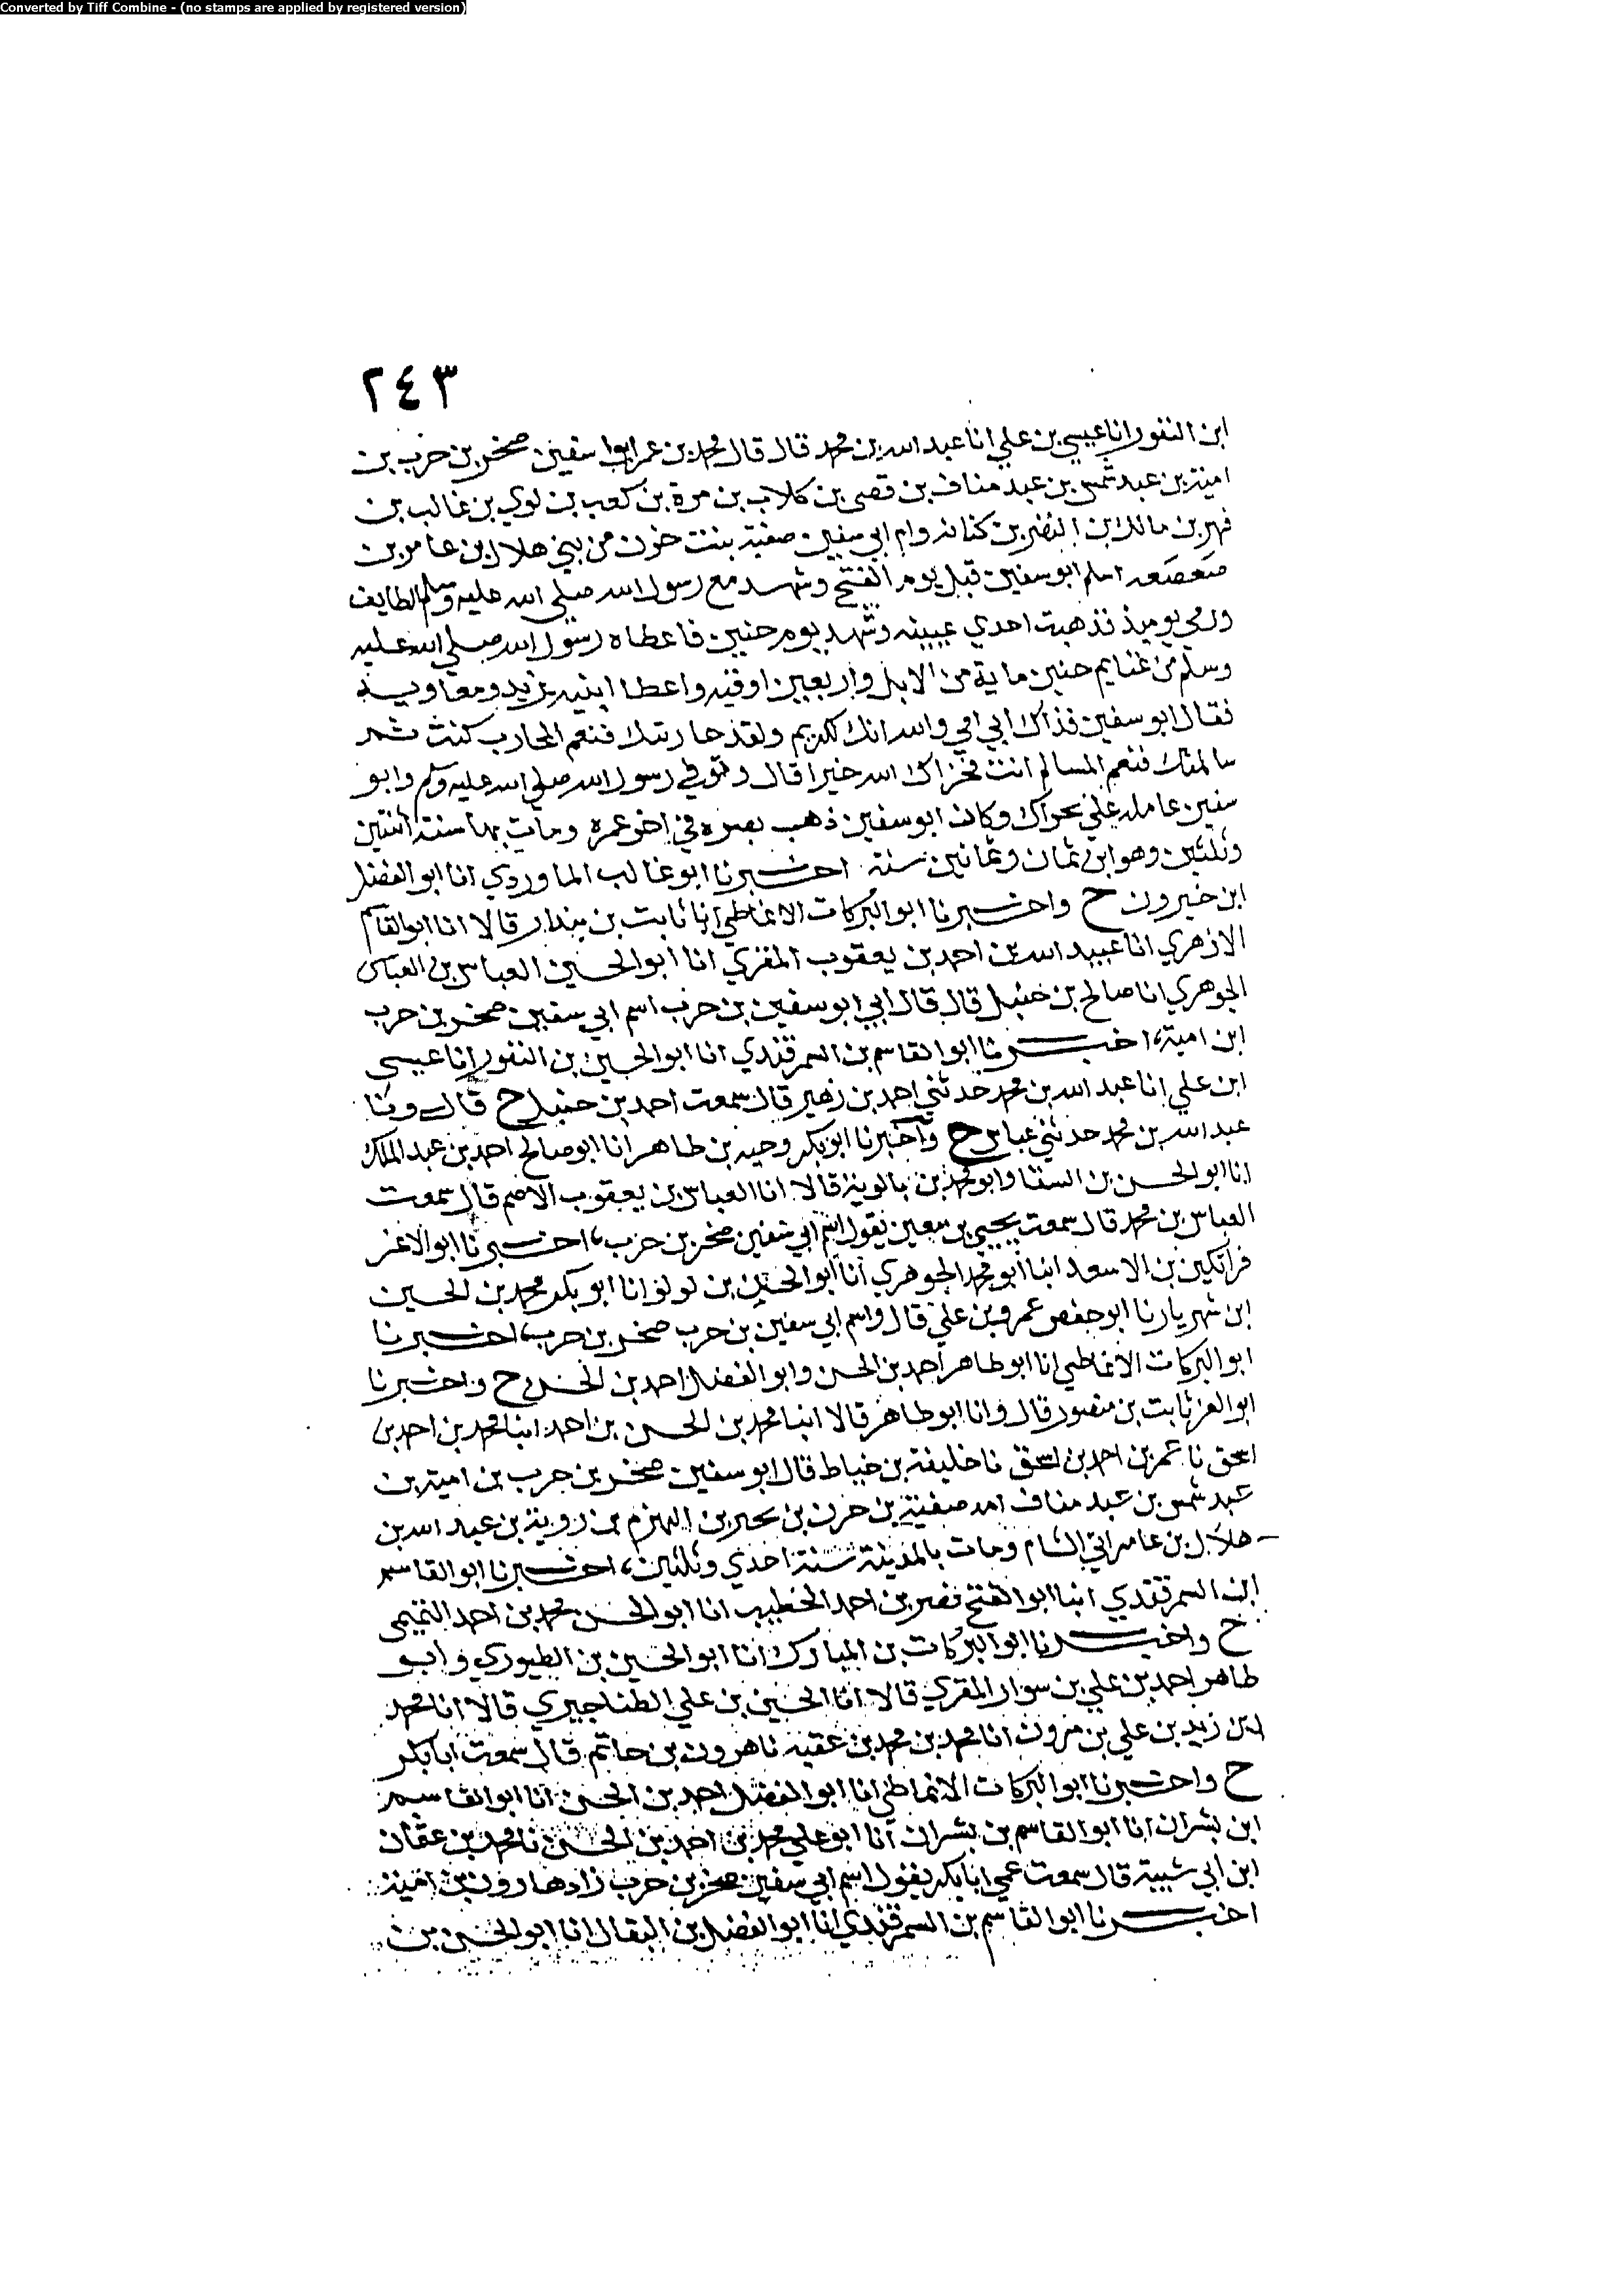 Converted by Tiff Combine - (no stamps are applied by registered version)
٢٤٣
ابن النقور انا عيسي بن علي انا عبد الله بن محمد قال قال محمد بن عمر ابوا سفين صخر بن حرب بن
امية بن عبد شمس بن عبد مناف بن قصى بن كلاب بن مرة بن كعب بن لوي بن غالب بن
فهر بن مالك بن النضر بن كنانه وام ابي سفين صفية بنت حزن من بني هلال بن عامر بن
صعصعه اسلم ابو سفين قبل يوم الفتح وشهد مع رسول الله صلي الله عليه وسلم الطايف
ورمي يوميذ فذهبت احدي عينيه وشهد يوم حنين فاعطاه رسول الله صلي الله عليه
وسلم من غنايم حنين ماية من الابل واربعين اوقيه واعطا ابنيه يزيد ومعاوية
فقال ابو سفين فداك ابي امي والله انك لكريم ولقد حاربتك فنعم المحارب كنت ثم
سالمتك فنعم المسالم انت فجزاك الله خيرا قال وتوفي رسول الله صلي الله عليه وسلم وابو
سفين عامله علي نجران وكان ابو سفين ذهب بصره في اخر عمره ومات بها سنة اثنتين
وثلثين وهو ابن ثمان وثمانين سنة اخبرنا ابو غالب الماوردي انا ابو الفضل
ابن خيرون ح واخبرنا ابو البركات الانماطي انا ثابت بن بندار قالا انا ابو القاسم
الازهري انا عبيد الله بن احمد بن يعقوب المقري انا ابو الحسين العباس بن العباس
الجوهري انا صالح بن حنبل قال قال ابي ابو سفين بن حرب اسم ابي سفين صخر بن حرب
ابن امية، اخبرنا ابو القاسم بن السمرقندي انا ابو الحسين بن النقور انا عيسى
ابن علي انا عبد الله بن محمد حدثني احمد بن زهير قال سمعت احمد بن حنبل ح قال ونا
عبد الله بن محمد حدثني عباس ح واخبرنا ابو بكر وجيه بن طاهر انا ابو صالح احمد بن عبد الملك
انا ابو الحسن بن السقا وابو محمد بن بالوية قالا انا العباس بن يعقوب الاصم قال سمعت
العباس بن محمد قال سمعت يحيي بن معين يقول اسم ابي سفين صخر بن حرب، اخبرنا ابو الاغر
قراتكين بن الاسعد انبا ابو محمد الجوهري انا ابو الحسين بن لولو انا ابو بكر محمد بن الحسين
ابن شهريار نا ابو حفص عمرو بن علي قال واسم ابي سفين بن حرب صخر بن حرب، اخبرنا
ابو البركات الانماطي انا ابو طاهر احمد بن الحسن وابو الفضل احمد بن الحسن ح واخبرنا
ابو العز ثابت بن منصور قال وانا ابو طاهر قالا انبا محمد بن الحسن بن احمد انبا محمد بن احمد بن
اسحق نا عمر بن احمد بن اسحق نا خليفة بن خياط قال ابو سفين صخر بن حرب بن امية بن
عبد شمس بن عبد مناف امه صفية بن حزن بن بحير بن الهزم بن روية بن عبد الله بن
هلال بن عامر اتي الشام ومات بالمدينة سنة احدي وثلثين، اخبرنا ابو القاسم
ابن السمرقندي انبا ابو الفتح نصر بن احمد الخطيب انا ابو الحسن محمد بن احمد التميمى
ح واخبرنا ابو البركات بن المبارك انا ابو الحسين بن الطيوري وابو
طاهر احمد بن علي بن سوار المقري قالا انا الحسين بن علي الطناجيري قالا انا محمد
ابن زيد بن علي بن مرون انا محمد بن محمد بن عقبه نا هرون بن حاتم قال سمعت ابا بكر
ح واخبرنا ابو البركات الانماطي انا ابو الفضل احمد بن الحسن انا ابو القاسم
ابن بشران انا ابو القاسم بن بشران انا ابو علي محمد بن احمد بن الحسن نا محمد بن عثمان
ابن ابي شيبة قال سمعت عمي ابا بكر يقول اسم ابي سفين صخر بن حرب زاد هارون بن امية
اخبرنا ابو القاسم بن السمرقندي انا ابو الفضل بن البقال انا ابو الحسن بن